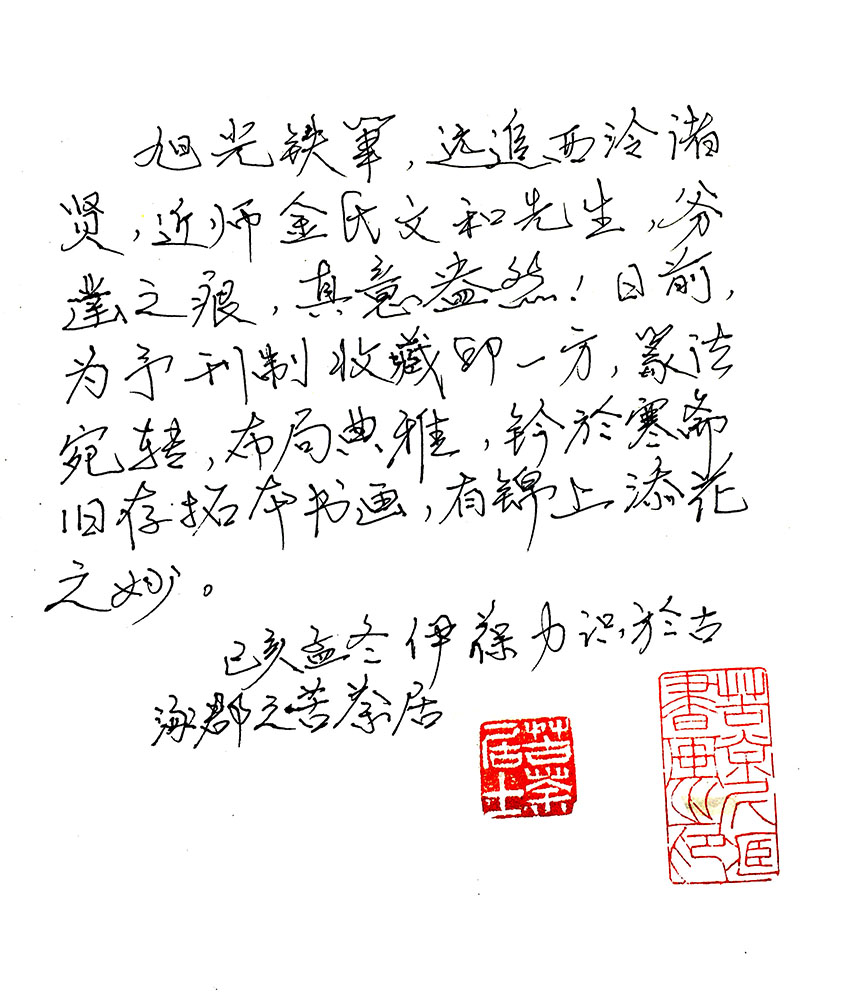 旭光铁筆，远追西泠诸
贤，近师金氏文和先生，斧
凿之痕，真意盎然！日前，
为予刊制收藏印一方，篆法
宛转，布局典雅，钤於寒斋
旧存拓本书画，有锦上添花
之妙。
己亥孟冬伊葆力识於古
海郡之苦茶居
苦茶居士